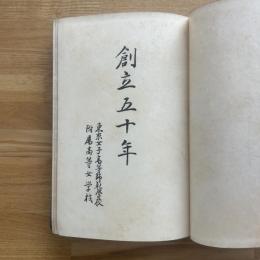 創立五十年
東京女子高等師範學校
附屬高等女學校